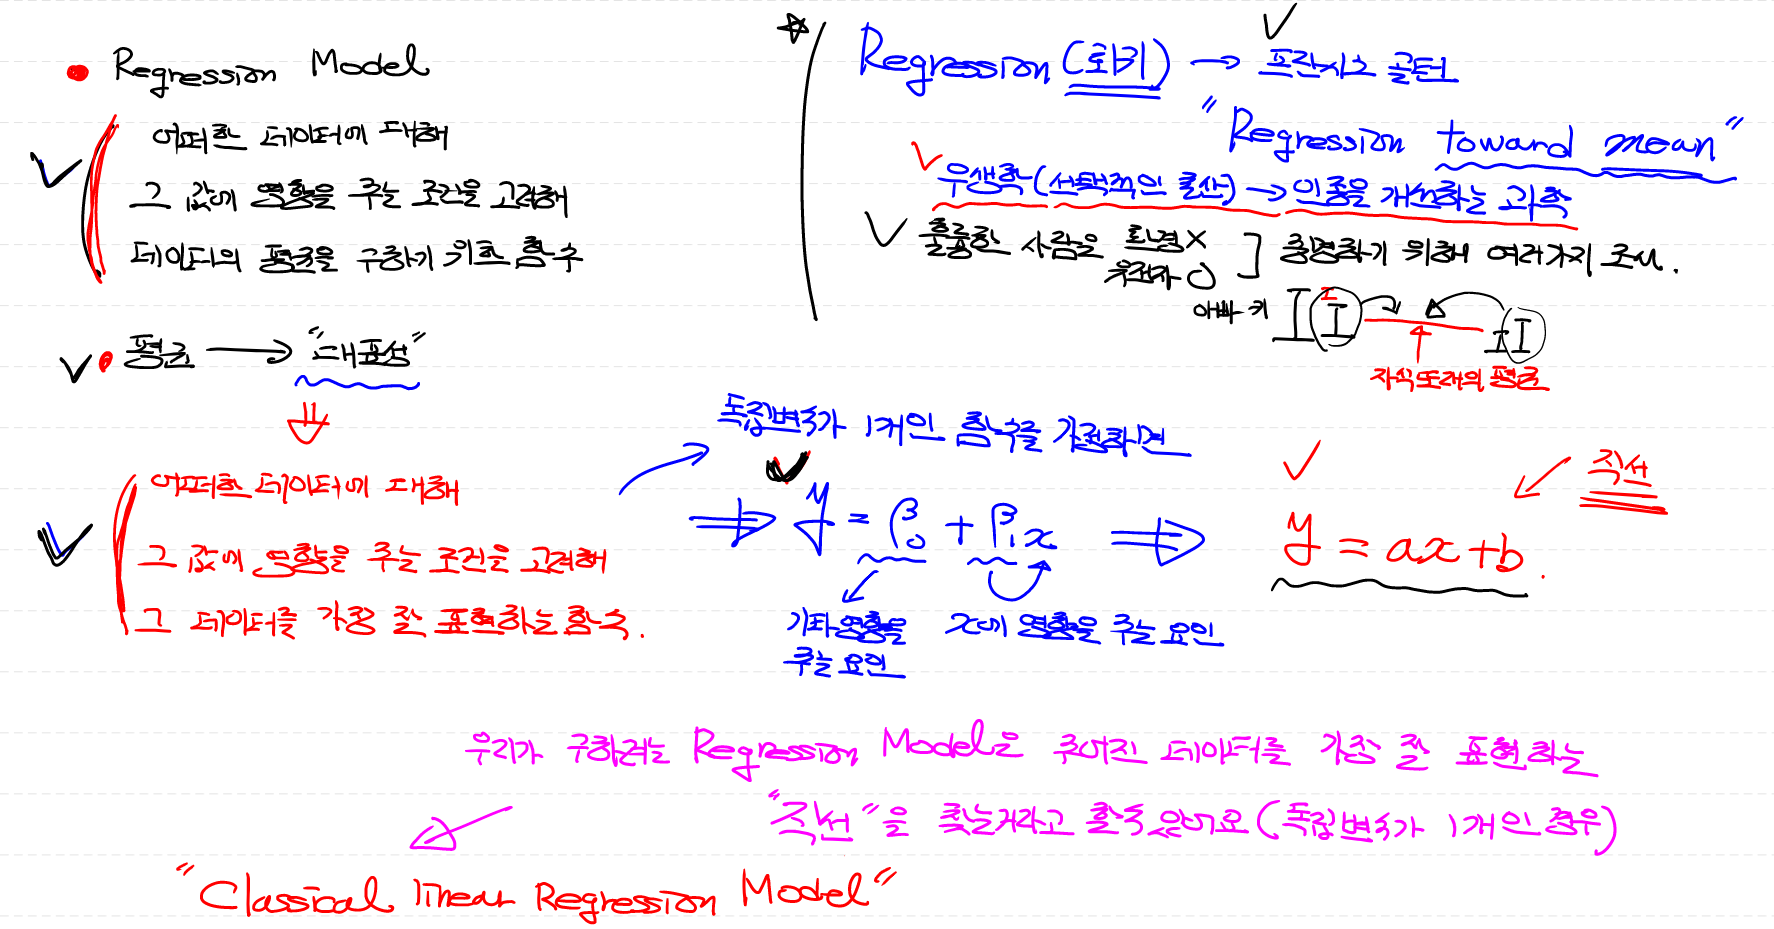 Regression Model
어떠한 데이터에 대해
그 값에 영향을 주는 조건을 고려해
데이터의 평균을 구하기 위한 함수
평균 → "대표성"
어떠한 데이터에 대해
그 값에 영향을 주는 조건을 고려해
그 데이터를 가장 잘 표현하는 함수.
Regression (회귀) → 프란시스 골턴
"Regression toward mean"
우생학(선택적인 출산) → 인종을 개선하는 과학
훌륭한 사람은 환경 X
유전자 O ] 증명하기 위해 여러가지 조사.
아빠 키
자식또래의 평균
독립변수가 1개인 함수를 가정하면
⇒ y = β₀ + β₁x ⇒ y = ax + b.
직선
기타영향을
주는 요인
x에 영향을 주는 요인
우리가 구하려는 Regression Model은 주어진 데이터를 가장 잘 표현하는
"직선"을 찾는거라고 할수있어요 (독립변수가 1개인 경우)
"Classical linear Regression Model"